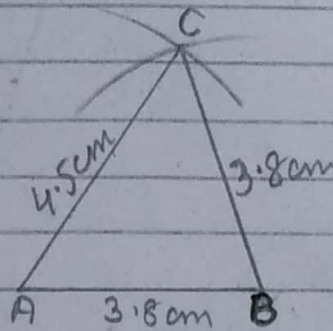 C
4.5cm
3.8cm
A
3.8cm
B